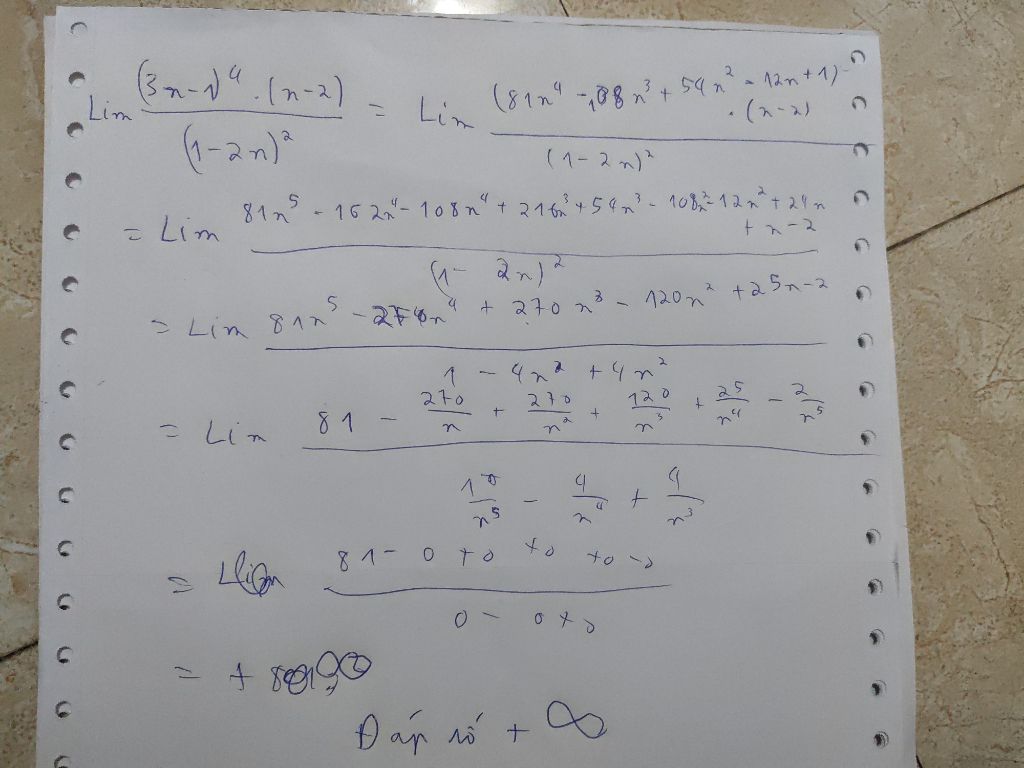 Lim (3n-1)^4 . (n-2) / (1-2n)^2 = Lim (81n^4 - 108n^3 + 54n^2 - 12n + 1) . (n-2) / (1-2n)^2
= Lim 81n^5 - 162n^4 - 108n^4 + 216n^3 + 54n^3 - 108n^2 - 12n^2 + 24n + n - 2 / (1 - 2n)^2
= Lim 81n^5 - 270n^4 + 270n^3 - 120n^2 + 25n - 2 / 1 - 4n^2 + 4n^2
= Lim 81 - 270/n + 270/n^2 + 120/n^3 + 25/n^4 - 2/n^5 / 1/n^5 - 4/n^4 + 4/n^3
= Lim 81 - 0 + 0 + 0 + 0 - 0 / 0 - 0 + 0
= + ∞
Đáp số + ∞